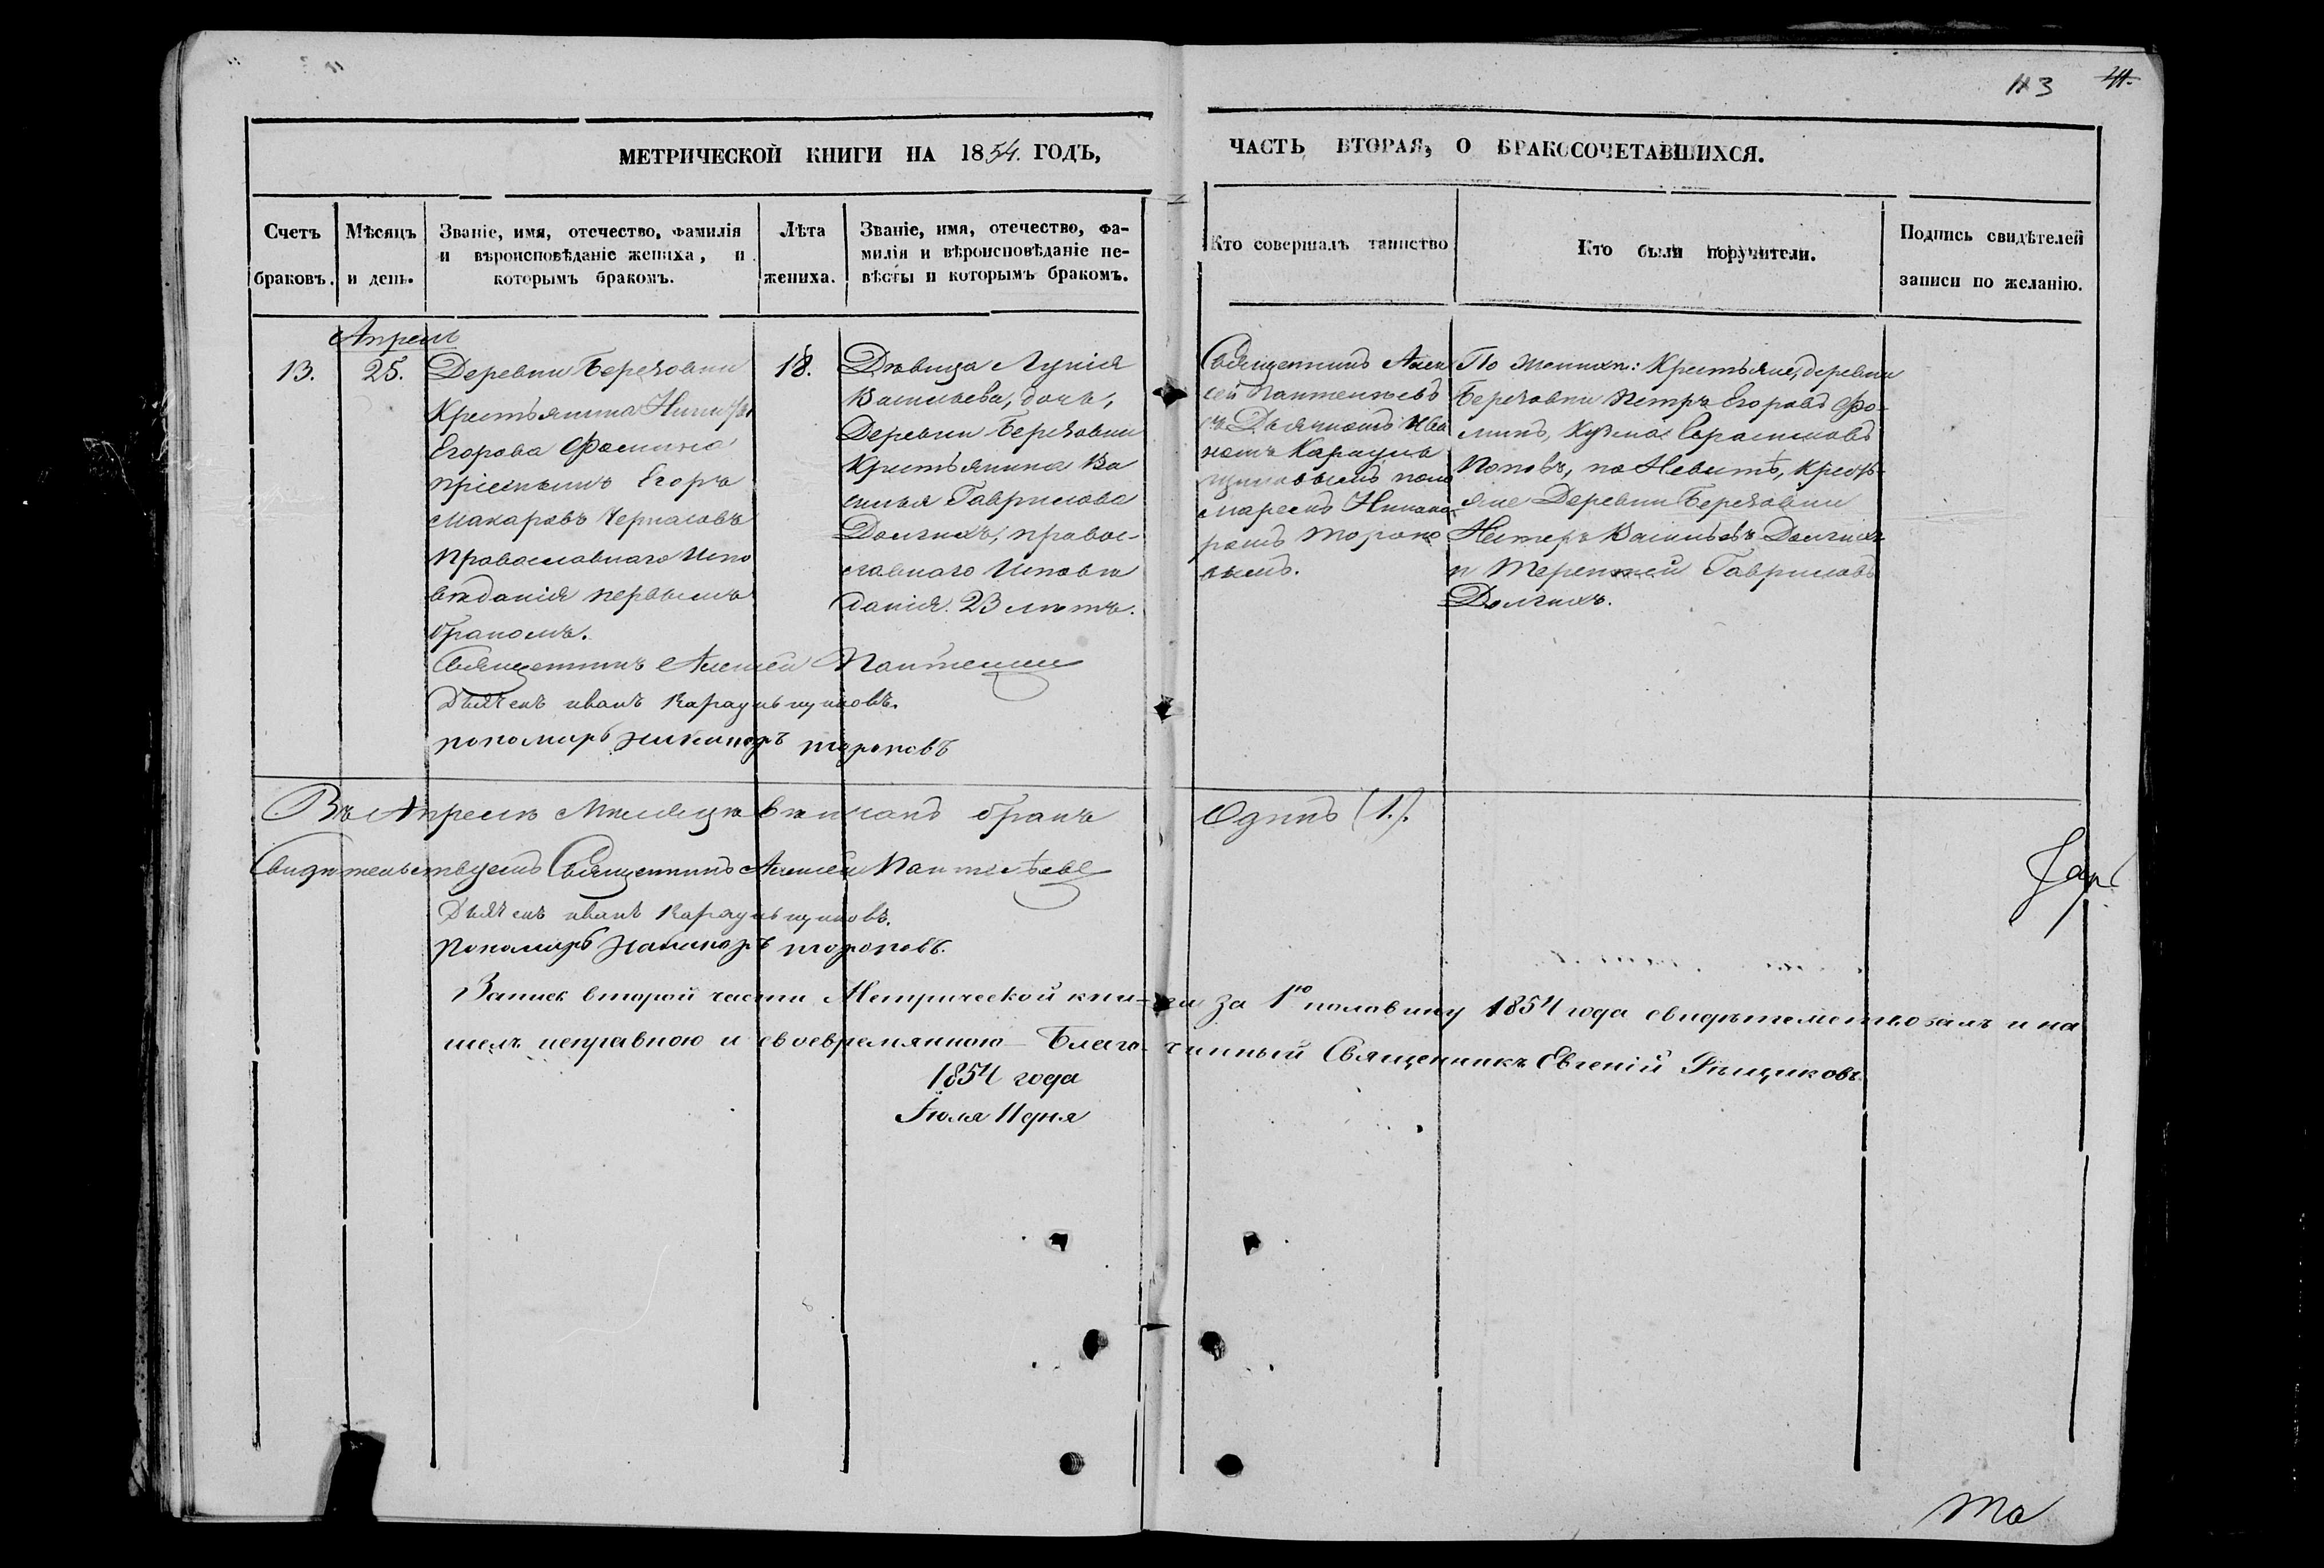 113 41.
МЕТРИЧЕСКОЙ КНИГИ НА 1854. ГОДЪ,
ЧАСТЬ ВТОРАЯ, О БРАКОСОЧЕТАВШИХСЯ.
Счетъ браковъ.
Мѣсяцъ и день.
Званіе, имя, отечество, фамилія
и вѣроисповѣданіе жениха, и
которымъ бракомъ.
Лѣта жениха.
Званіе, имя, отечество, фа-
милія и вѣроисповѣданіе не-
вѣсты и которымъ бракомъ.
Кто совершалъ таинство
Кто были поручители.
Подпись свидѣтелей
записи по желанію.
Апрель
13.
25.
Деревни Березовки
Крестьянина
Егорова Фомина
пріемышъ Егоръ
Макаровъ Черкасовъ
Православнаго Испо
вѣданія первымъ
бракомъ.
18.
Дѣвица Лукія
Васильева, дочь,
Деревни Березовки
Крестьянина Ва
силья Гаврилова
Долгихъ, правос-
лавнаго Исповѣ
данія. 23 лѣтъ.
Священникъ Алек
сей Пантелеевъ
съ Дьячкомъ Ива
номъ Карауль
щиковымъ поно
маремъ Никано
ромъ Торопо
вымъ.
По Женихѣ: Крестьяне, деревни
Березовки Петръ Егоровъ Фо-
минъ, Кузма Герасимовъ
Поповъ, по Невѣстѣ, Крестья-
яне Деревни Березовки
Нестеръ Васильевъ Долгихъ
и Терентей Гавриловъ
Долгихъ.
Священникъ Алексей Пантелеевъ
Дьячекъ иванъ Караульщиковъ.
пономарь никаноръ тороповъ
Въ Апрелѣ Мѣсяцѣ вѣнчанъ бракъ
Одинъ (1.).
Свидѣтельствуемъ Священникъ Алексей Пантелѣевъ
Дьячекъ иванъ Караульщиковъ.
пономарь никаноръ тороповъ.
Запись второй части Метрической книги за 1ю половину 1854 года свидѣтельствовалъ и на
шелъ исправною и своевремянною Благочинный Священникъ Евгеній
1854 года
Іюля 11 дня